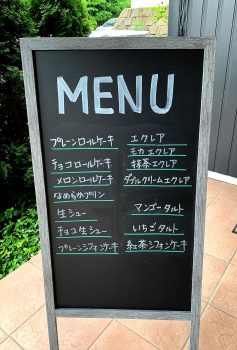 MENU
プレーンロールケーキ
チョコロールケーキ
メロンロールケーキ
なめらかプリン
生シュー
チョコ生シュー
プレーンシフォンケーキ
エクレア
モカエクレア
抹茶エクレア
ダブルクリームエクレア
マンゴータルト
いちごタルト
紅茶シフォンケーキ